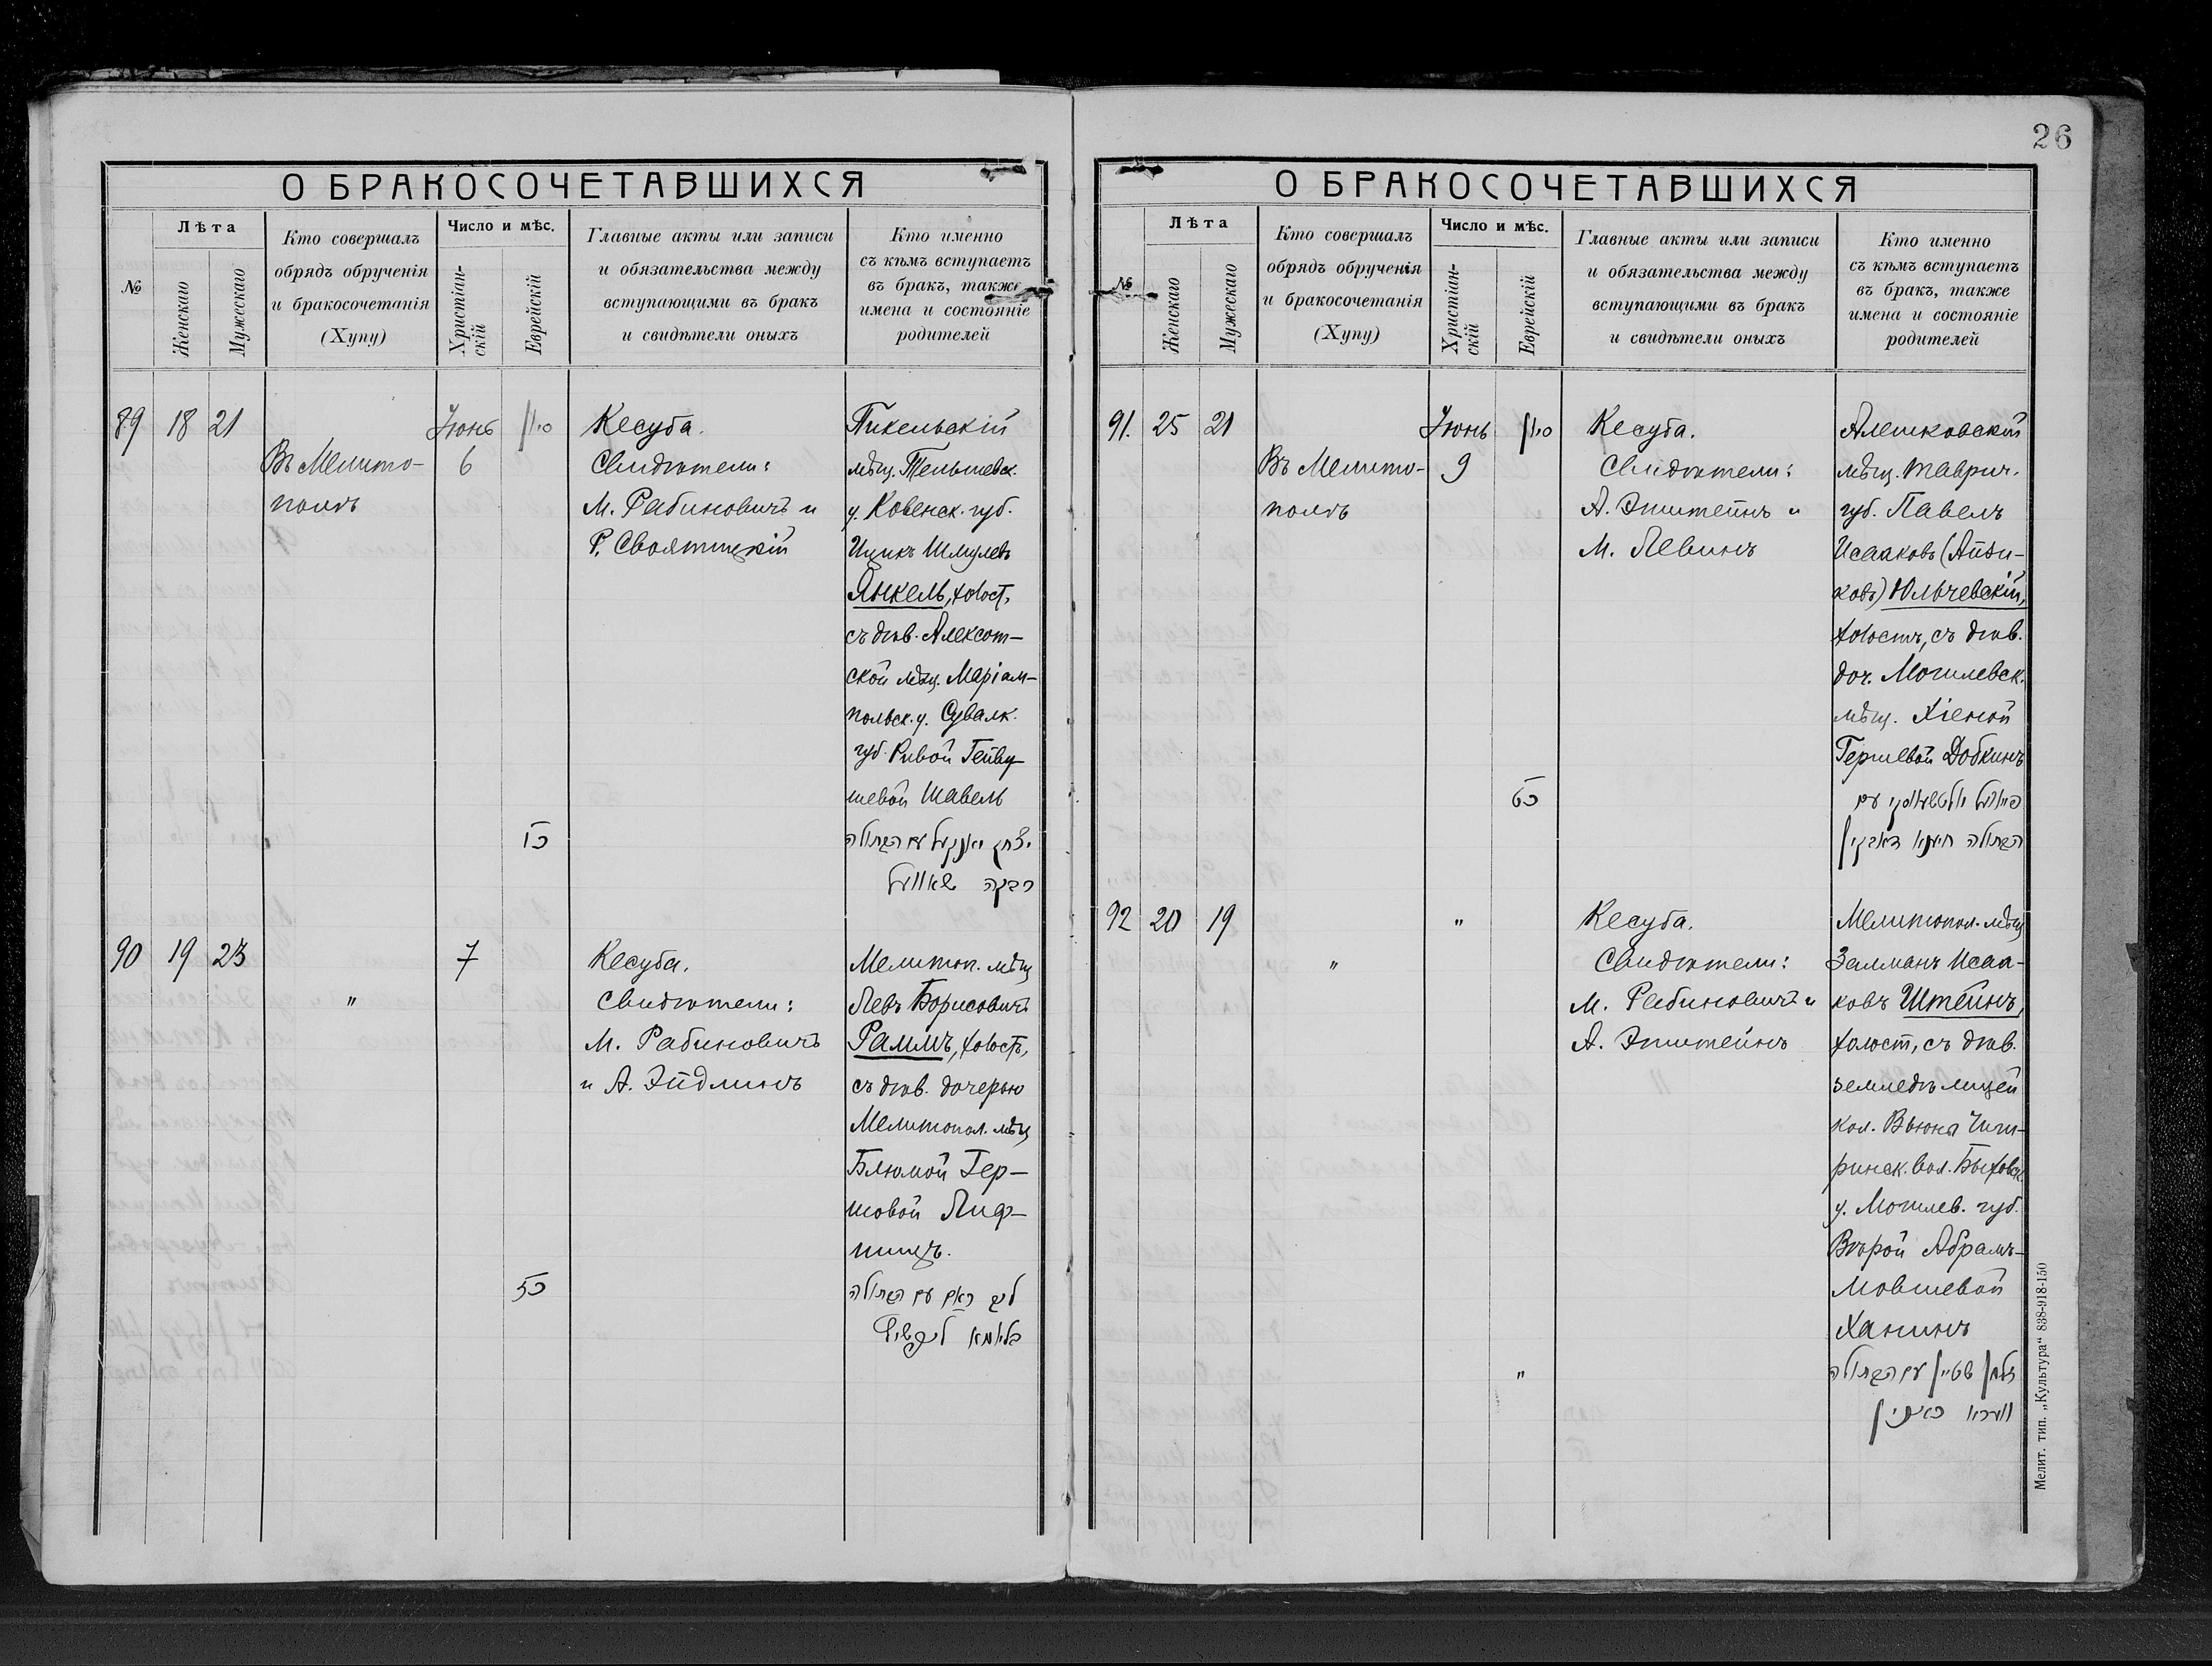 26
О БРАКОСОЧЕТАВШИХСЯ
№
Лѣта
Женскаго
Мужескаго
Кто совершалъ
обрядъ обрученія
и бракосочетанія
(Хупу)
Число и мѣс.
Христіан-
скій
Еврейскій
Главные акты или записи
и обязательства между
вступающими въ бракъ
и свидѣтели оныхъ
Кто именно
съ кѣмъ вступаетъ
въ бракъ, также
имена и состояніе
родителей
89 18 21
Въ Мелито-
полѣ
Іюнь
6
סיון
כו
Кесуба.
Свидѣтели:
М. Рабиновичъ и
Р. Святицкій
Пикельскій
мѣщ. Тельшевск.
у. Ковенск. губ.
Ицикъ Шмулевъ
Янкель, холост,
съ дѣв. Алексот-
ской мѣщ. Маріам-
польск. у. Сувалк.
губ. Ривой Гейву-
шевой Шавель
יצחק יאנקעל עם הבתולה
רבקה שאוועל
90 19 23
"
7
כז
Кесуба.
Свидѣтели:
М. Рабиновичъ
и А. Эйдлинъ
Мелитоп. мѣщ
Левъ Борисовичъ
Раммъ, холостъ,
съ дѣв. дочерью
Мелитопол. мѣщ
Блюмой Гер-
шовой Лиф-
шицъ.
ליב ראם עם הבתולה
בלומא ליפשיץ
О БРАКОСОЧЕТАВШИХСЯ
№
Лѣта
Женскаго
Мужескаго
Кто совершалъ
обрядъ обрученія
и бракосочетанія
(Хупу)
Число и мѣс.
Христіан-
скій
Еврейскій
Главные акты или записи
и обязательства между
вступающими въ бракъ
и свидѣтели оныхъ
Кто именно
съ кѣмъ вступаетъ
въ бракъ, также
имена и состояніе
родителей
91. 25 21
Въ Мелито-
полѣ
Іюнь
9
סיון
כט
Кесуба.
Свидѣтели:
А. Эпштейнъ и
М. Левинъ
Алешковскій
мѣщ. Таврич.
губ. Павелъ
Исааковъ (Айзи-
ковъ) Юльчевскій,
холостъ, съ дѣв.
доч. Могилевск.
мѣщ. Хіеной
Гершевой Добкинъ
עם
הבתולה חיענא דאבקין
92 20 19
"
"
"
Кесуба.
Свидѣтели:
М. Рабиновичъ и
А. Эпштейнъ
Мелитопол. мѣщ
Залманъ Исаа-
ковъ Штейнъ,
холост, съ дѣв.
земледѣлицей
кол. Вьюна Чиги-
ринск. вол. Быховск.
у. Могилев. губ.
Вѣрой Абрамъ-
Мовшевой
Ханинъ
זלמן שטיין עם הבתולה
ווערא כאנין
Мелит. тип. „Культура“ 838-918-150